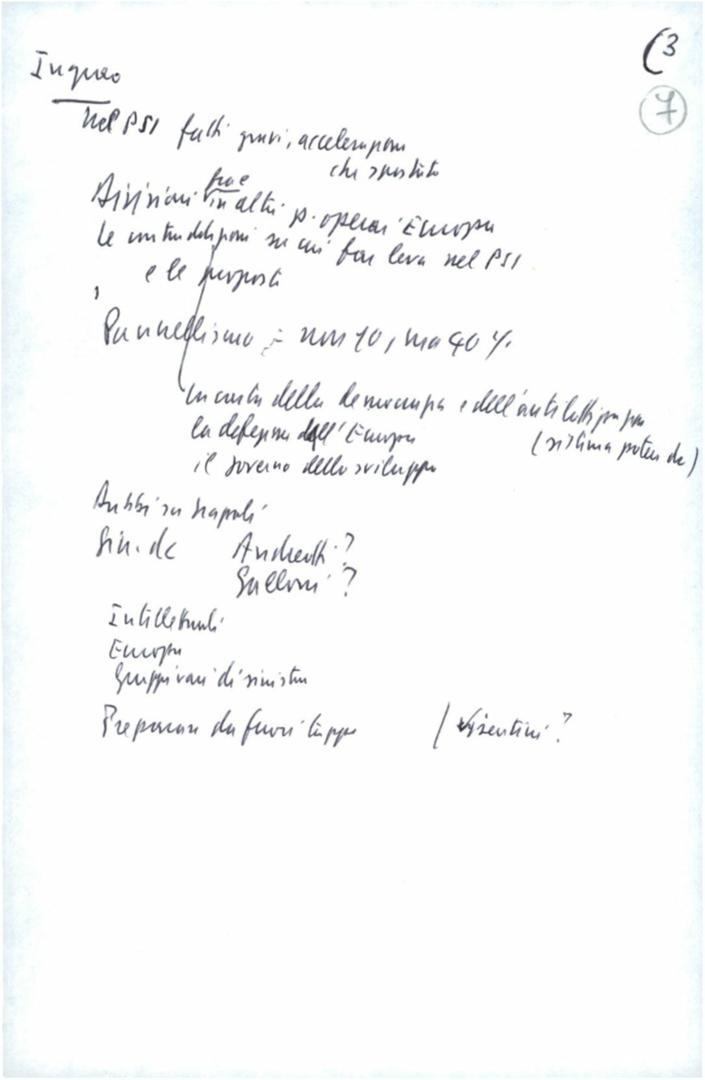 (3
7
Ingrao
nel PSI fatti gravi, accelerazione
che spostato
Divisioni fra e in altri p. operai Europa
le contraddizioni su cui far leva nel PSI
e le proposte
Pannellismo = non 10, ma 40 %.
della democrazia e dell'antilottizzazione
la defezione dell'Europa (sistema potere dc)
il governo dello sviluppo
su Napoli
Sin. dc Andreotti?
Galloni?
Intellettuali
Europa
Gruppi vari di sinistra
Preparare da fuori tappe / Visentini?